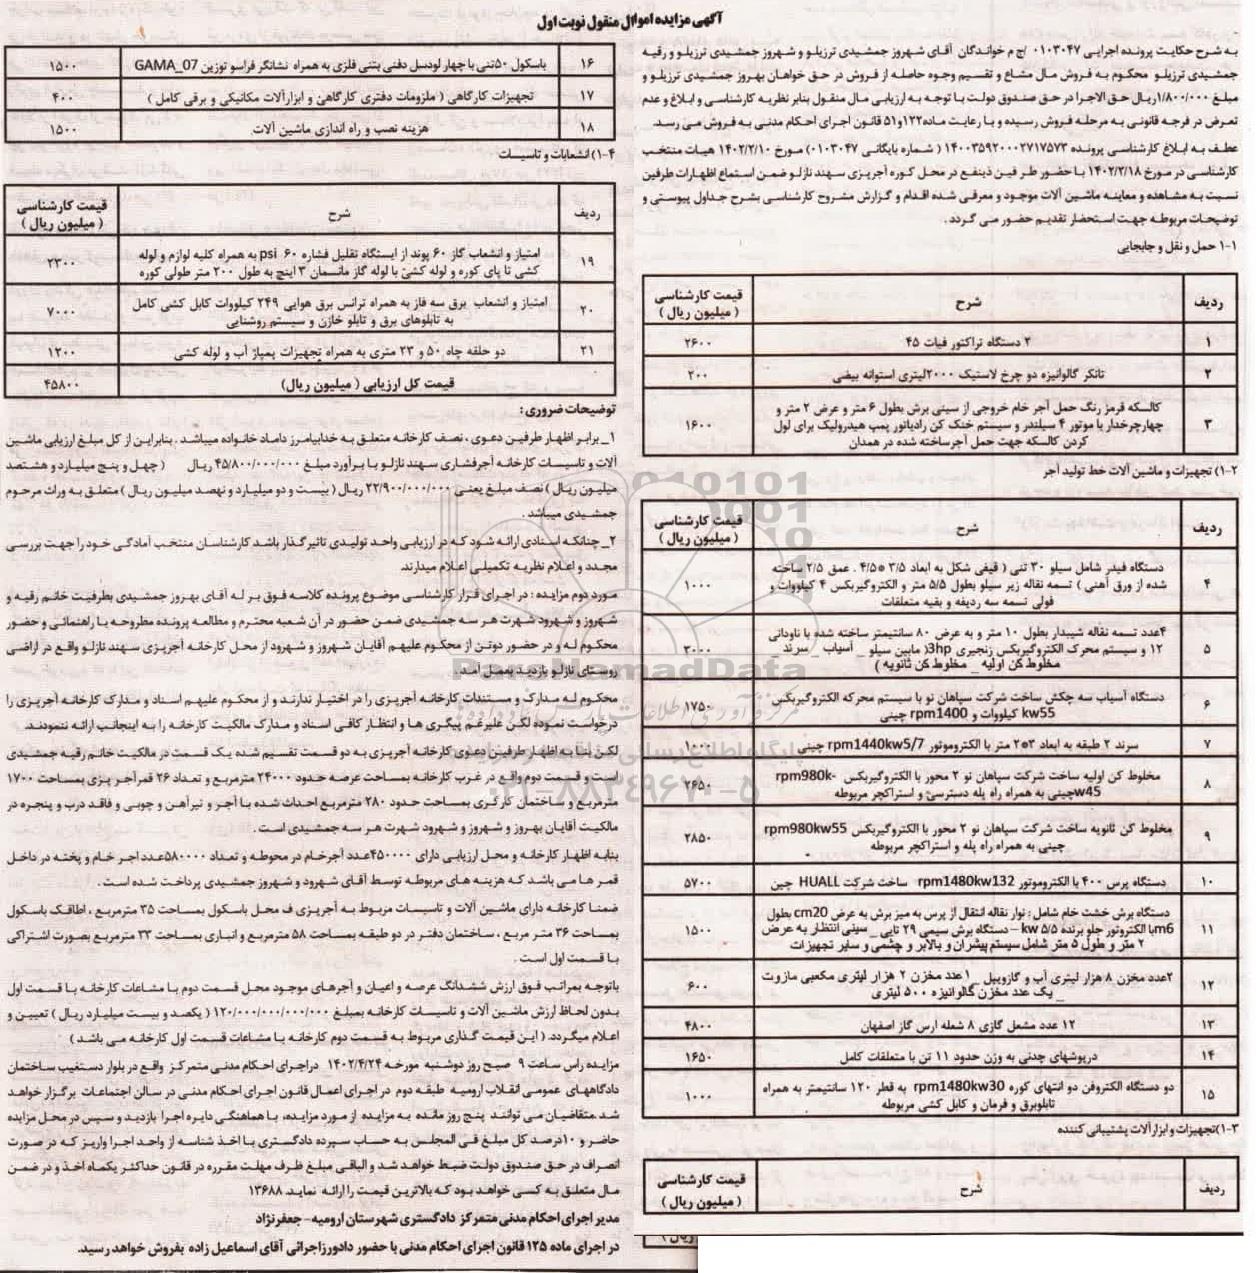 آگهی مزایده اموال منقول نوبت اول
به شرح حکایت پرونده اجرایی ۰۱۰۳۰۴۷ /ج م خواندگان آقای شهروز جمشیدی ترزیلو و شهروز جمشیدی ترزیلو و رقیه
جمشیدی ترزیلو محکوم به فروش مال مشاع و تقسیم وجوه حاصله از فروش در حق خواهان بهروز جمشیدی ترزیلو و
مبلغ ۱/۸۰۰/۰۰۰ریال حق الاجرا در حق صندوق دولت با توجه به ارزیابی مال منقول بنابر نظریه کارشناسی و ابلاغ و عدم
تعرض در فرجه قانونی به مرحله فروش رسیده و با رعایت ماده۱۲۲و۵۱ قانون اجرای احکام مدنی به فروش می رسد.
عطف به ابلاغ کارشناسی پرونده ۱۴۰۰۳۵۹۲۰۰۰۲۷۱۷۵۷۳ ( شماره بایگانی ۰۱۰۳۰۴۷) مورخ ۱۴۰۲/۲/۱۰ هیات منتخب
کارشناسی در مورخ ۱۴۰۲/۲/۱۸ با حضور طرفین ذینفع در محل کوره آجرپزی سهند نازلو ضمن استماع اظهارات طرفین
نسبت به مشاهده و معاینه ماشین آلات موجود و معرفی شده اقدام و گزارش مشروح کارشناسی بشرح جداول پیوستی و
توضیحات مربوطه جهت استحضار تقدیم حضور می گردد .
۱-۱ حمل و نقل و جابجایی
ردیف شرح قیمت کارشناسی ( میلیون ریال )
۱ ۲ دستگاه تراکتور فیات ۴۵ ۲۶۰۰
۲ تانکر گالوانیزه دو چرخ لاستیک ۲۰۰۰لیتری استوانه بیضی ۲۰۰
۳ کالسکه قرمز رنگ حمل آجر خام خروجی از سینی برش بطول ۶ متر و عرض ۲ متر و
چهارچرخدار با موتور ۴ سیلندر و سیستم خنک کن رادیاتور پمپ هیدرولیک برای لول ۱۶۰۰
کردن کالسکه جهت حمل آجرساخته شده در همدان
۱-۲) تجهیزات و ماشین آلات خط تولید آجر
ردیف شرح قیمت کارشناسی ( میلیون ریال )
دستگاه فیدر شامل سیلو ۳۰ تنی ( قیفی شکل به ابعاد ۳/۵ *۴/۵ . عمق ۲/۵ ساخته
۴ شده از ورق آهنی ) تسمه نقاله زیر سیلو بطول ۵/۵ متر و الکتروگیربکس ۴ کیلووات و ۱۰۰۰
فولی تسمه سه ردیفه و بقیه متعلقات
۴عدد تسمه نقاله شیبدار بطول ۱۰ متر و به عرض ۸۰ سانتیمتر ساخته شده با ناودانی
۵ ۱۲ و سیستم محرک الکتروگیربکس زنجیری 3hp( مابین سیلو _ آسیاب _ سرند _ ۳۰۰۰
مخلوط کن اولیه _ مخلوط کن ثانویه )
۶ دستگاه آسیاب سه چکش ساخت شرکت سپاهان نو با سیستم محرکه الکتروگیربکس ۱۷۵۰
kw55 کیلووات و rpm1400 چینی
۷ سرند ۲ طبقه به ابعاد ۳*۲ متر با الکتروموتور rpm1440kw5/7 چینی ۱۰۰۰
۸ مخلوط کن اولیه ساخت شرکت سپاهان نو ۲ محور با الکتروگیربکس rpm980k- ۲۶۵۰
w45چینی به همراه راه پله دسترسی و استراکچر مربوطه
۹ مخلوط کن ثانویه ساخت شرکت سپاهان نو ۲ محور با الکتروگیربکس rpm980kw55 ۲۸۵۰
چینی به همراه راه پله و استراکچر مربوطه
۱۰ دستگاه پرس ۴۰۰ با الکتروموتور rpm1480kw132 ساخت شرکت HUALL چین ۵۷۰۰
دستگاه برش خشت خام شامل : نوار نقاله انتقال از پرس به میز برش به عرض cm20 بطول
۱۱ m6با الکتروتور جلو برنده kw ۵/۵ – دستگاه برش سیمی ۲۹ تایی _ سینی انتظار به عرض ۱۵۰۰
۲ متر و طول ۵ متر شامل سیستم پیشران و بالابر و چشمی و سایر تجهیزات
۱۲ ۲عدد مخزن ۸ هزار لیتری آب و گازوییل _ ۱عدد مخزن ۲ هزار لیتری مکعبی مازوت ۶۰۰
_ یک عدد مخزن گالوانیزه ۵۰۰ لیتری
۱۳ ۱۲ عدد مشعل گازی ۸ شعله ارس گاز اصفهان ۴۸۰۰
۱۴ درپوشهای چدنی به وزن حدود ۱۱ تن با متعلقات کامل ۱۶۵۰
۱۵ دو دستگاه الکتروفن دو انتهای کوره rpm1480kw30 به قطر ۱۲۰ سانتیمتر به همراه ۱۰۰۰
تابلوبرق و فرمان و کابل کشی مربوطه
۱-۳)تجهیزات و ابزارآلات پشتیبانی کننده
ردیف شرح قیمت کارشناسی ( میلیون ریال )
۱۶ باسکول ۵۰تنی با چهار لودسل دفنی بتنی فلزی به همراه نشانگر فراسو توزین GAMA_07 ۱۵۰۰
۱۷ تجهیزات کارگاهی ( ملزومات دفتری کارگاهی و ابزارآلات مکانیکی و برقی کامل ) ۴۰۰
۱۸ هزینه نصب و راه اندازی ماشین آلات ۱۵۰۰
۱-۴) انشعابات و تاسیسات
ردیف شرح قیمت کارشناسی ( میلیون ریال )
۱۹ امتیاز و انشعاب گاز ۶۰ پوند از ایستگاه تقلیل فشاره ۶۰ psi به همراه کلیه لوازم و لوله ۲۳۰۰
کشی تا پای کوره و لوله کشی با لوله گاز مانسمان ۳ اینچ به طول ۲۰۰ متر طولی کوره
۲۰ امتیاز و انشعاب برق سه فاز به همراه ترانس برق هوایی ۲۴۹ کیلووات کابل کشی کامل ۷۰۰۰
به تابلوهای برق و تابلو خازن و سیستم روشنایی
۲۱ دو حلقه چاه ۵۰ و ۲۳ متری به همراه تجهیزات پمپاژ آب و لوله کشی ۱۲۰۰
قیمت کل ارزیابی ( میلیون ریال) ۴۵۸۰۰
توضیحات ضروری :
۱_ برابر اظهار طرفین دعوی ، نصف کارخانه متعلق به خدابیامرز داماد خانواده میباشد . بنابراین از کل مبلغ ارزیابی ماشین
آلات و تاسیسات کارخانه آجرفشاری سهند نازلو با برآورد مبلغ ۴۵/۸۰۰/۰۰۰/۰۰۰ ریال ( چهل و پنج میلیارد و هشتصد
میلیون ریال ) نصف مبلغ یعنی ۲۲/۹۰۰/۰۰۰/۰۰۰ ریال ( بیست و دو میلیارد و نهصد میلیون ریال ) متعلق به وراث مرحوم
جمشیدی میباشد .
۲_ چنانکه اسنادی ارائه شود که در ارزیابی واحد تولیدی تاثیرگذار باشد کارشناسان منتخب آمادگی خود را جهت بررسی
مجدد و اعلام نظریه تکمیلی اعلام میدارند.
مورد دوم مزایده : در اجرای قرار کارشناسی موضوع پرونده کلاسه فوق بر له آقای بهروز جمشیدی بطرفیت خانم رقیه و
شهروز و شهرود شهرت هر سه جمشیدی ضمن حضور در آن شعبه محترم و مطالعه پرونده مطروحه با راهنمائی و حضور
محکوم له و در حضور دوتن از محکوم علیهم آقایان شهروز و شهرود از محل کارخانه آجرپزی سهند نازلو واقع در اراضی
روستای نازلو بازدید بعمل آمد.
محکوم له مدارک و مستندات کارخانه آجرپزی را در اختیار ندارند و از محکوم علیهم اسناد و مدارک کارخانه آجرپزی را
درخواست نموده لکن علیرغم پیگیری ها و انتظار کافی اسناد و مدارک مالکیت کارخانه را به اینجانب ارائه ننمودند.
لکن بنا به اظهار طرفین دعوی کارخانه آجرپزی به دو قسمت تقسیم شده یک قسمت در مالکیت خانم رقیه جمشیدی
است و قسمت دوم واقع در غرب کارخانه بمساحت عرصه حدود ۲۴۰۰۰ مترمربع و تعداد ۲۶ قمرآجرپزی بمساحت ۱۷۰۰
مترمربع و ساختمان کارگری بمساحت حدود ۲۸۰ مترمربع احداث شده با آجر و تیرآهن و چوبی و فاقد درب و پنجره در
مالکیت آقایان بهروز و شهروز و شهرود شهرت هر سه جمشیدی است .
بنابه اظهار کارخانه و محل ارزیابی دارای ۴۵۰۰۰۰عدد آجرخام در محوطه و تعداد ۵۸۰۰۰۰عدد اجر خام و پخته در داخل
قمرها می باشد که هزینه های مربوطه توسط آقای شهرود و شهروز جمشیدی پرداخت شده است .
ضمنا کارخانه دارای ماشین آلات و تاسیسات مربوط به آجرپزی ف محل باسکول بمساحت ۳۵ مترمربع ، اطاقک باسکول
بمساحت ۳۶ متر مربع ، ساختمان دفتر در دو طبقه بمساحت ۵۸ مترمربع و انباری بمساحت ۳۳ مترمربع بصورت اشتراکی
با قسمت اول است .
باتوجه بمراتب فوق ارزش ششدانگ عرصه و اعیان و آجرهای موجود محل قسمت دوم با مشاعات کارخانه با قسمت اول
بدون لحاظ ارزش ماشین آلات و تاسیسات کارخانه بمبلغ ۱۲۰/۰۰۰/۰۰۰/۰۰۰ ( یکصد و بیست میلیارد ریال ) تعیین و
اعلام میگردد. ( این قیمت گذاری مربوط به قسمت دوم کارخانه با مشاعات قسمت اول کارخانه می باشد )
مزایده راس ساعت ۹ صبح روز دوشنبه مورخه ۱۴۰۲/۴/۲۴ دراجرای احکام مدنی متمرکز واقع در بلوار دستغیب ساختمان
دادگاههای عمومی انقلاب ارومیه طبقه دوم در اجرای اعمال قانون اجرای احکام مدنی در سالن اجتماعات برگزار خواهد
شد .متقاضیان می توانند پنج روز مانده به مزایده از مورد مزایده، با هماهنگی دایره اجرا بازدید و سپس در محل مزایده
حاضر و ۱۰درصد کل مبلغ فی المجلس به حساب سپرده دادگستری با اخذ شناسه از واحد اجرا واریز که در صورت
انصراف در حق صندوق دولت ضبط خواهد شد و الباقی مبلغ ظرف مهلت مقرره در قانون حداکثر یکماه اخذ و در ضمن
مال متعلق به کسی خواهد بود که بالاترین قیمت را ارائه نماید. ۱۳۶۸۸
مدیر اجرای احکام مدنی متمرکز دادگستری شهرستان ارومیه- جعفرنژاد
در اجرای ماده ۱۲۵ قانون اجرای احکام مدنی با حضور دادورزاجرائی آقای اسماعیل زاده بفروش خواهد رسید.